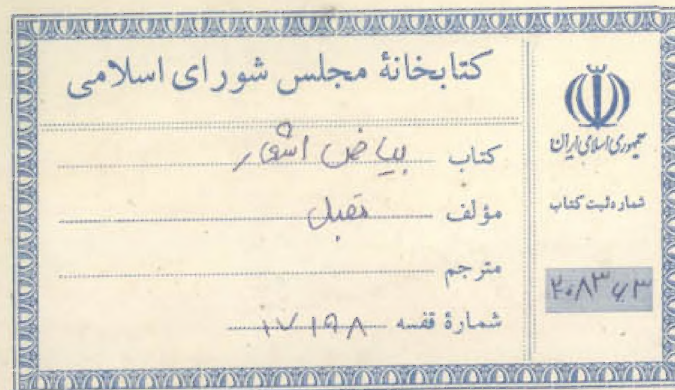 کتابخانهٔ مجلس شورای اسلامی
کتاب بیاض اشعار
مؤلف مقبل
مترجم
شمارهٔ قفسه ۱۷۱۹۸
جمهوری اسلامی ایران
شماره ثبت کتاب
۲۰۸۳۶۳